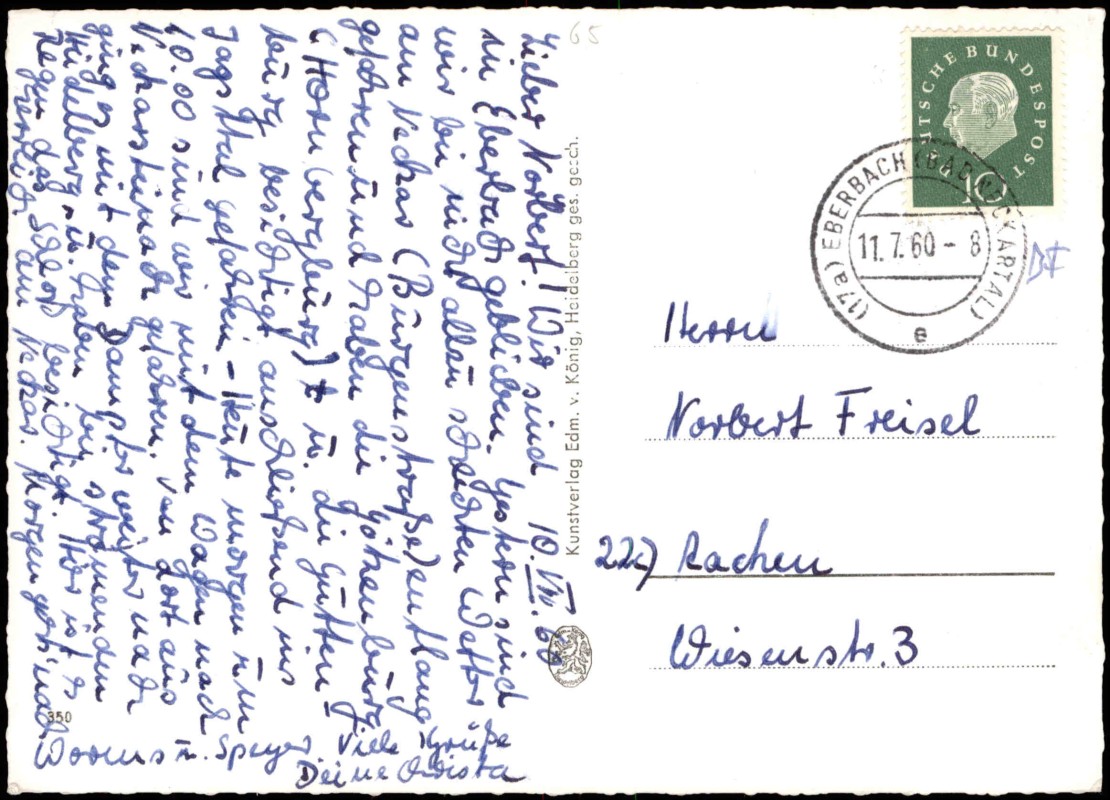 10.VII.60
Lieber Norbert! Wir sind
in Eberbach geblieben. Gestern sind
wir bei nicht allzu schlechten Wetter
am Neckar (Burgenstraße) entlang
gefahren und haben die Götzenburg
(Hornbergburg) u. die Gutten-
burg besichtigt anschließend ins
Jagsttal gefahren - Heute morgen um
10.00 sind wir mit dem Wagen nach
Neckarsteinach gefahren. Von dort aus
ging es mit dem Dampfer weiter nach
Heidelberg u. haben bei strömenden
Regen das Schloß besichtigt. Hier ist es
herrlich am Neckar. Morgen geht's nach
Worms u. Speyer. Viele Grüße
Deine
65
Kunstverlag Edm. v. König, Heidelberg ges. gesch.
350
DEUTSCHE BUNDESPOST
10
(17a) EBERBACH (BAD NECKARTAL)
11.7.60 - 8
e
Herrn
Norbert Freisel
22c) Aachen
Wiesenstr. 3